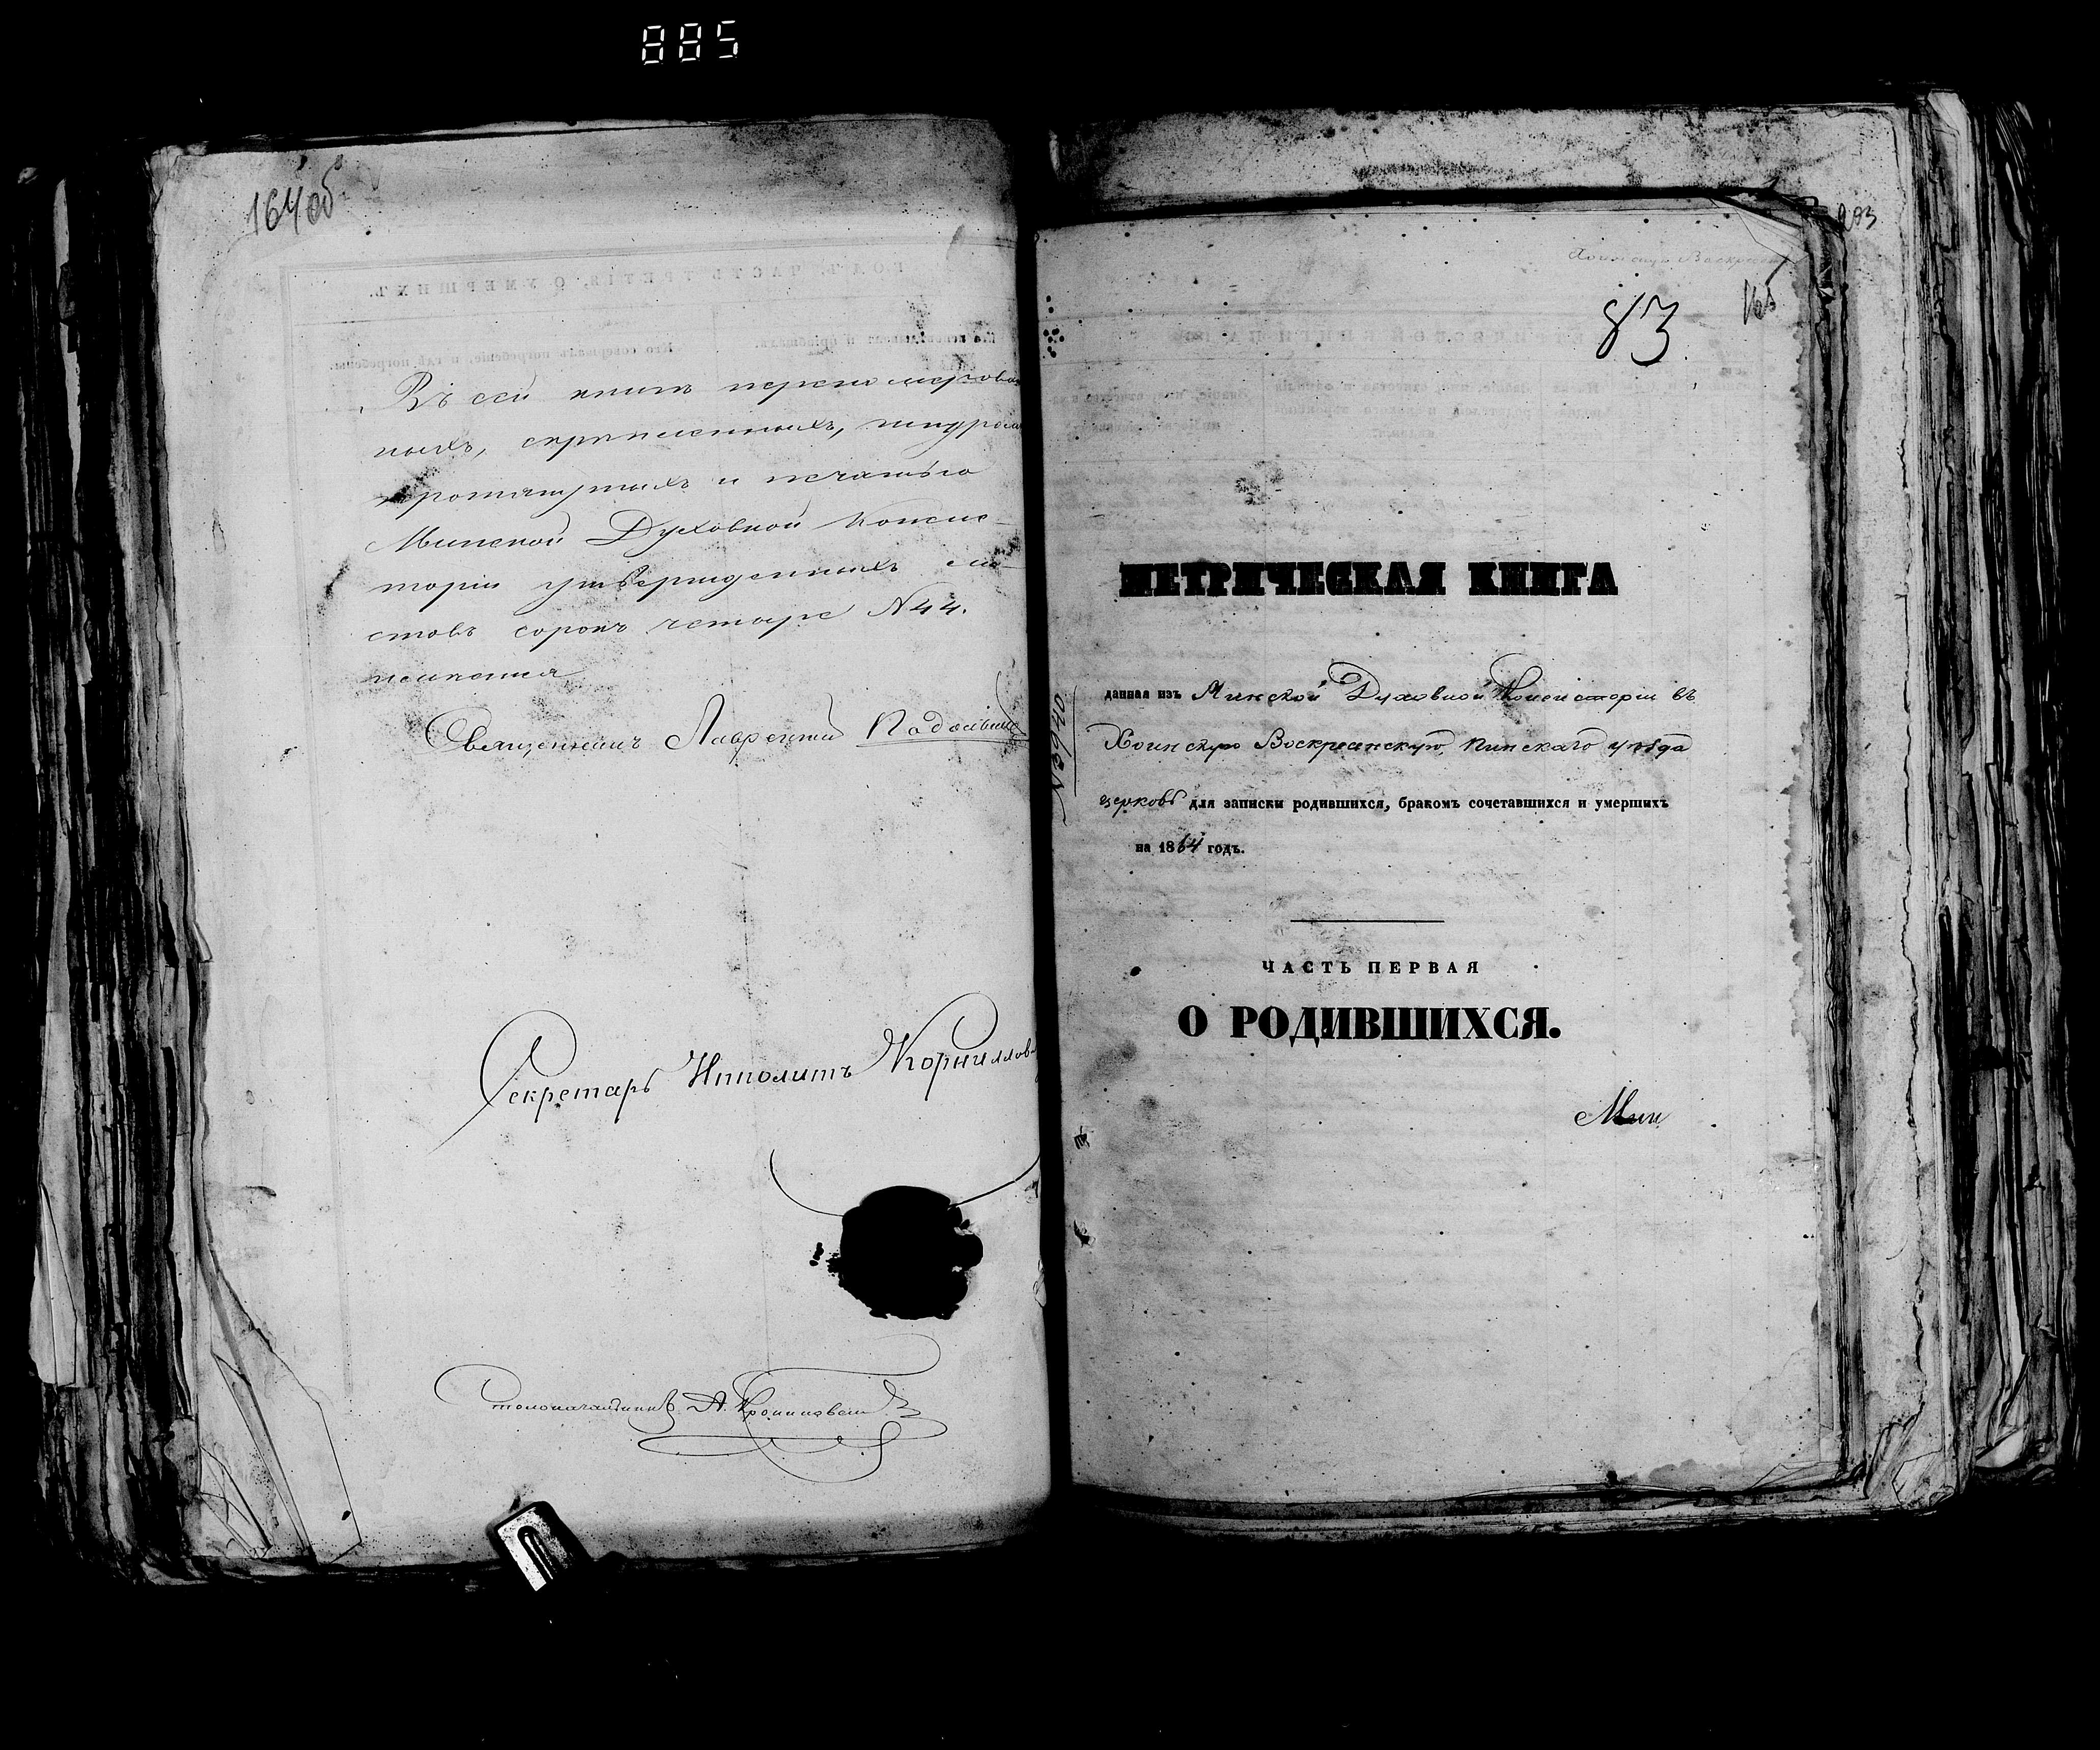 885
164об
Въ сей книгѣ перенумерован
ныхъ, скрѣпленныхъ, шнуромъ
протянутыхъ и печатью
Минской Духовной Консис-
торіи утвержденныхъ ли-
стовъ сорокъ четыре N 44.
Священникъ Лаврентий
Секретарь Ипполитъ Корниллов
Столоначальникъ А.
Хоинскую Воскресен
83
165
МЕТРИЧЕСКАЯ КНИГА
данная изъ Минской Духовной Консисторіи въ
Хоинскую Воскресенскую, Пинскаго уѣзда
церковь для записки родившихся, бракомъ сочетавшихся и умершихъ
на 1864 годъ.
ЧАСТЬ ПЕРВАЯ
О РОДИВШИХСЯ.
Мин